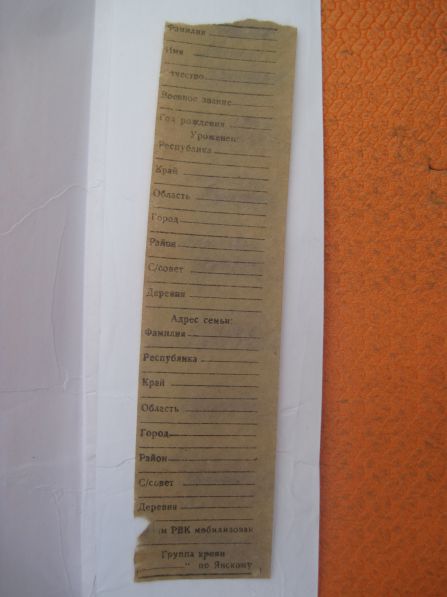 Фамилия
Имя
чество
Военное звание
Год рождения
Уроженец
Республика
Край
Область
Город
Район
С/совет
Деревня
Адрес семьи:
Фамилия
Республика
Край
Область
Город
Район
С/совет
Деревня
м РВК мобилизован
Группа крови
" по Янскому